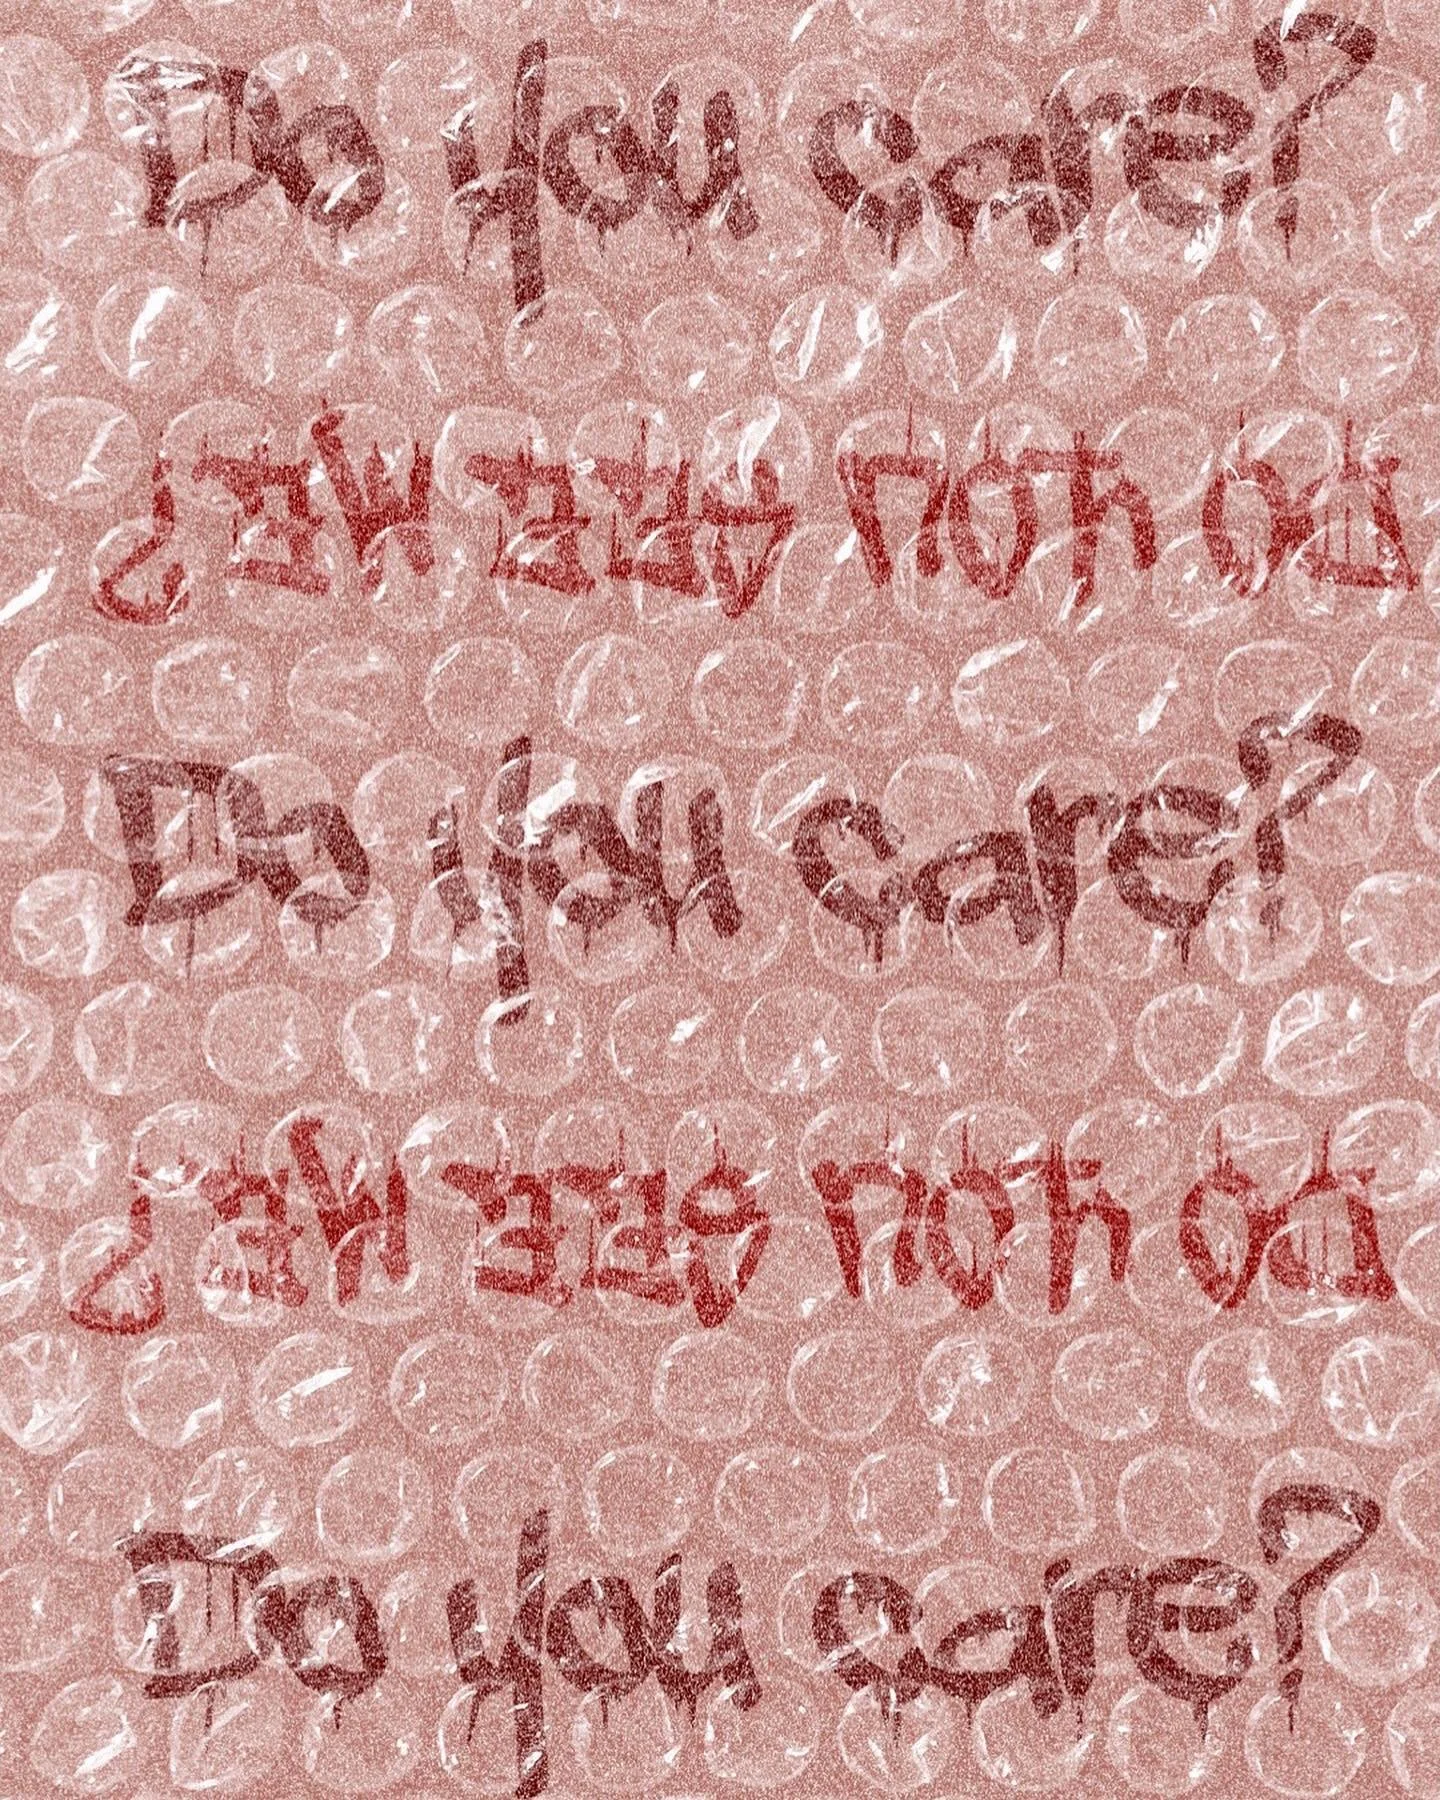 Do you care?
DO YOU SEE ME?
Do you care?
DO YOU SEE ME?
Do you care?